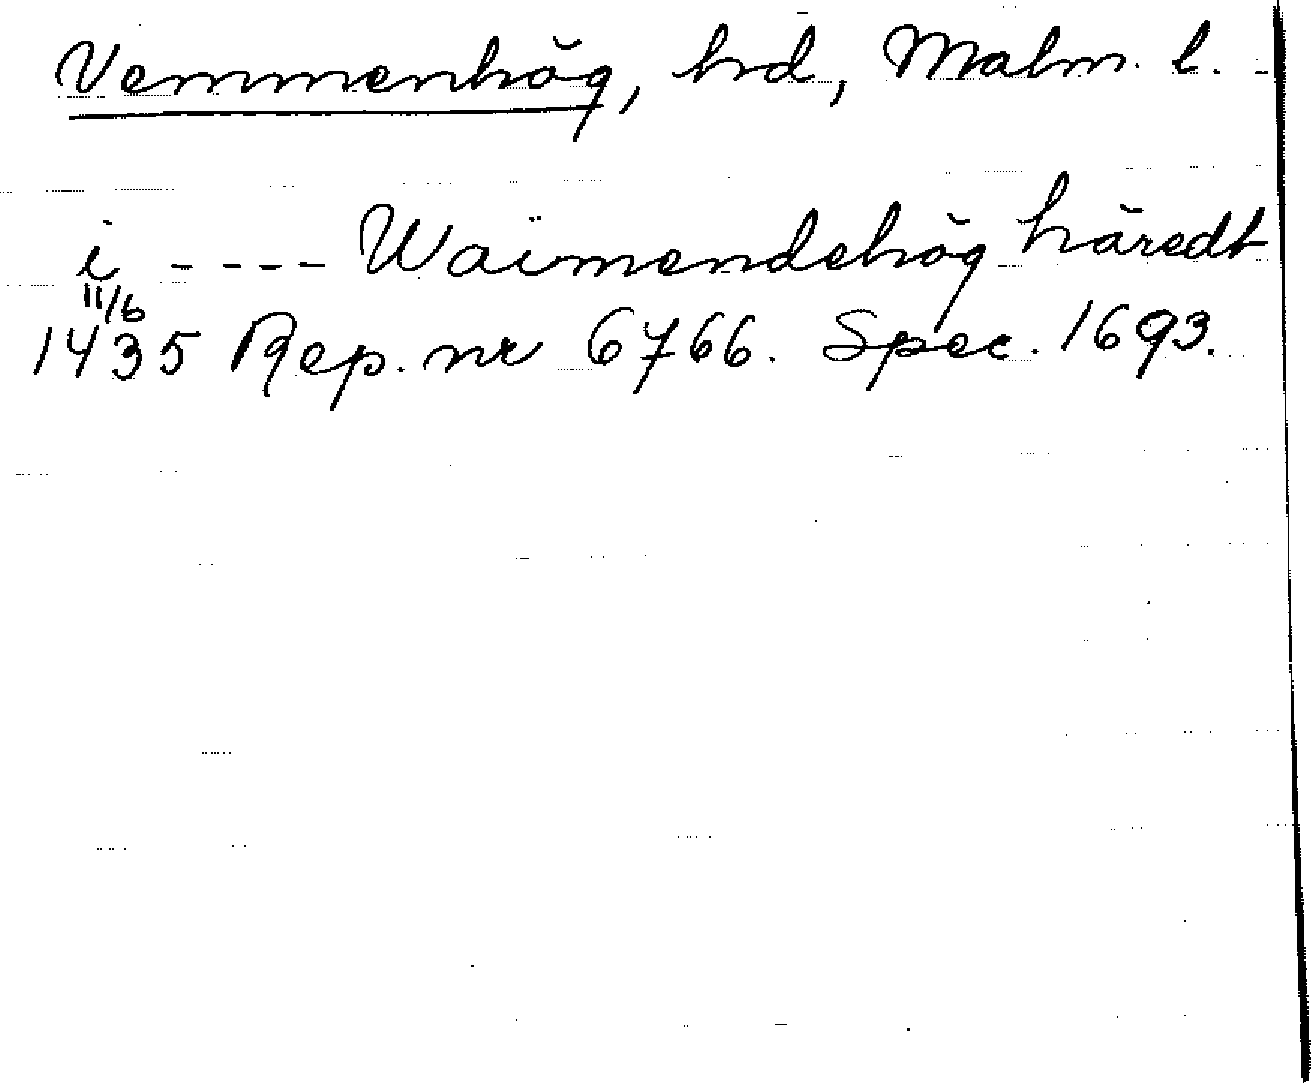 Vemmenhög, hrd, Malm. l.
i - - - - Waimendehög häredt
11/6
1435 Rep. nr 6766. Spec. 1693.